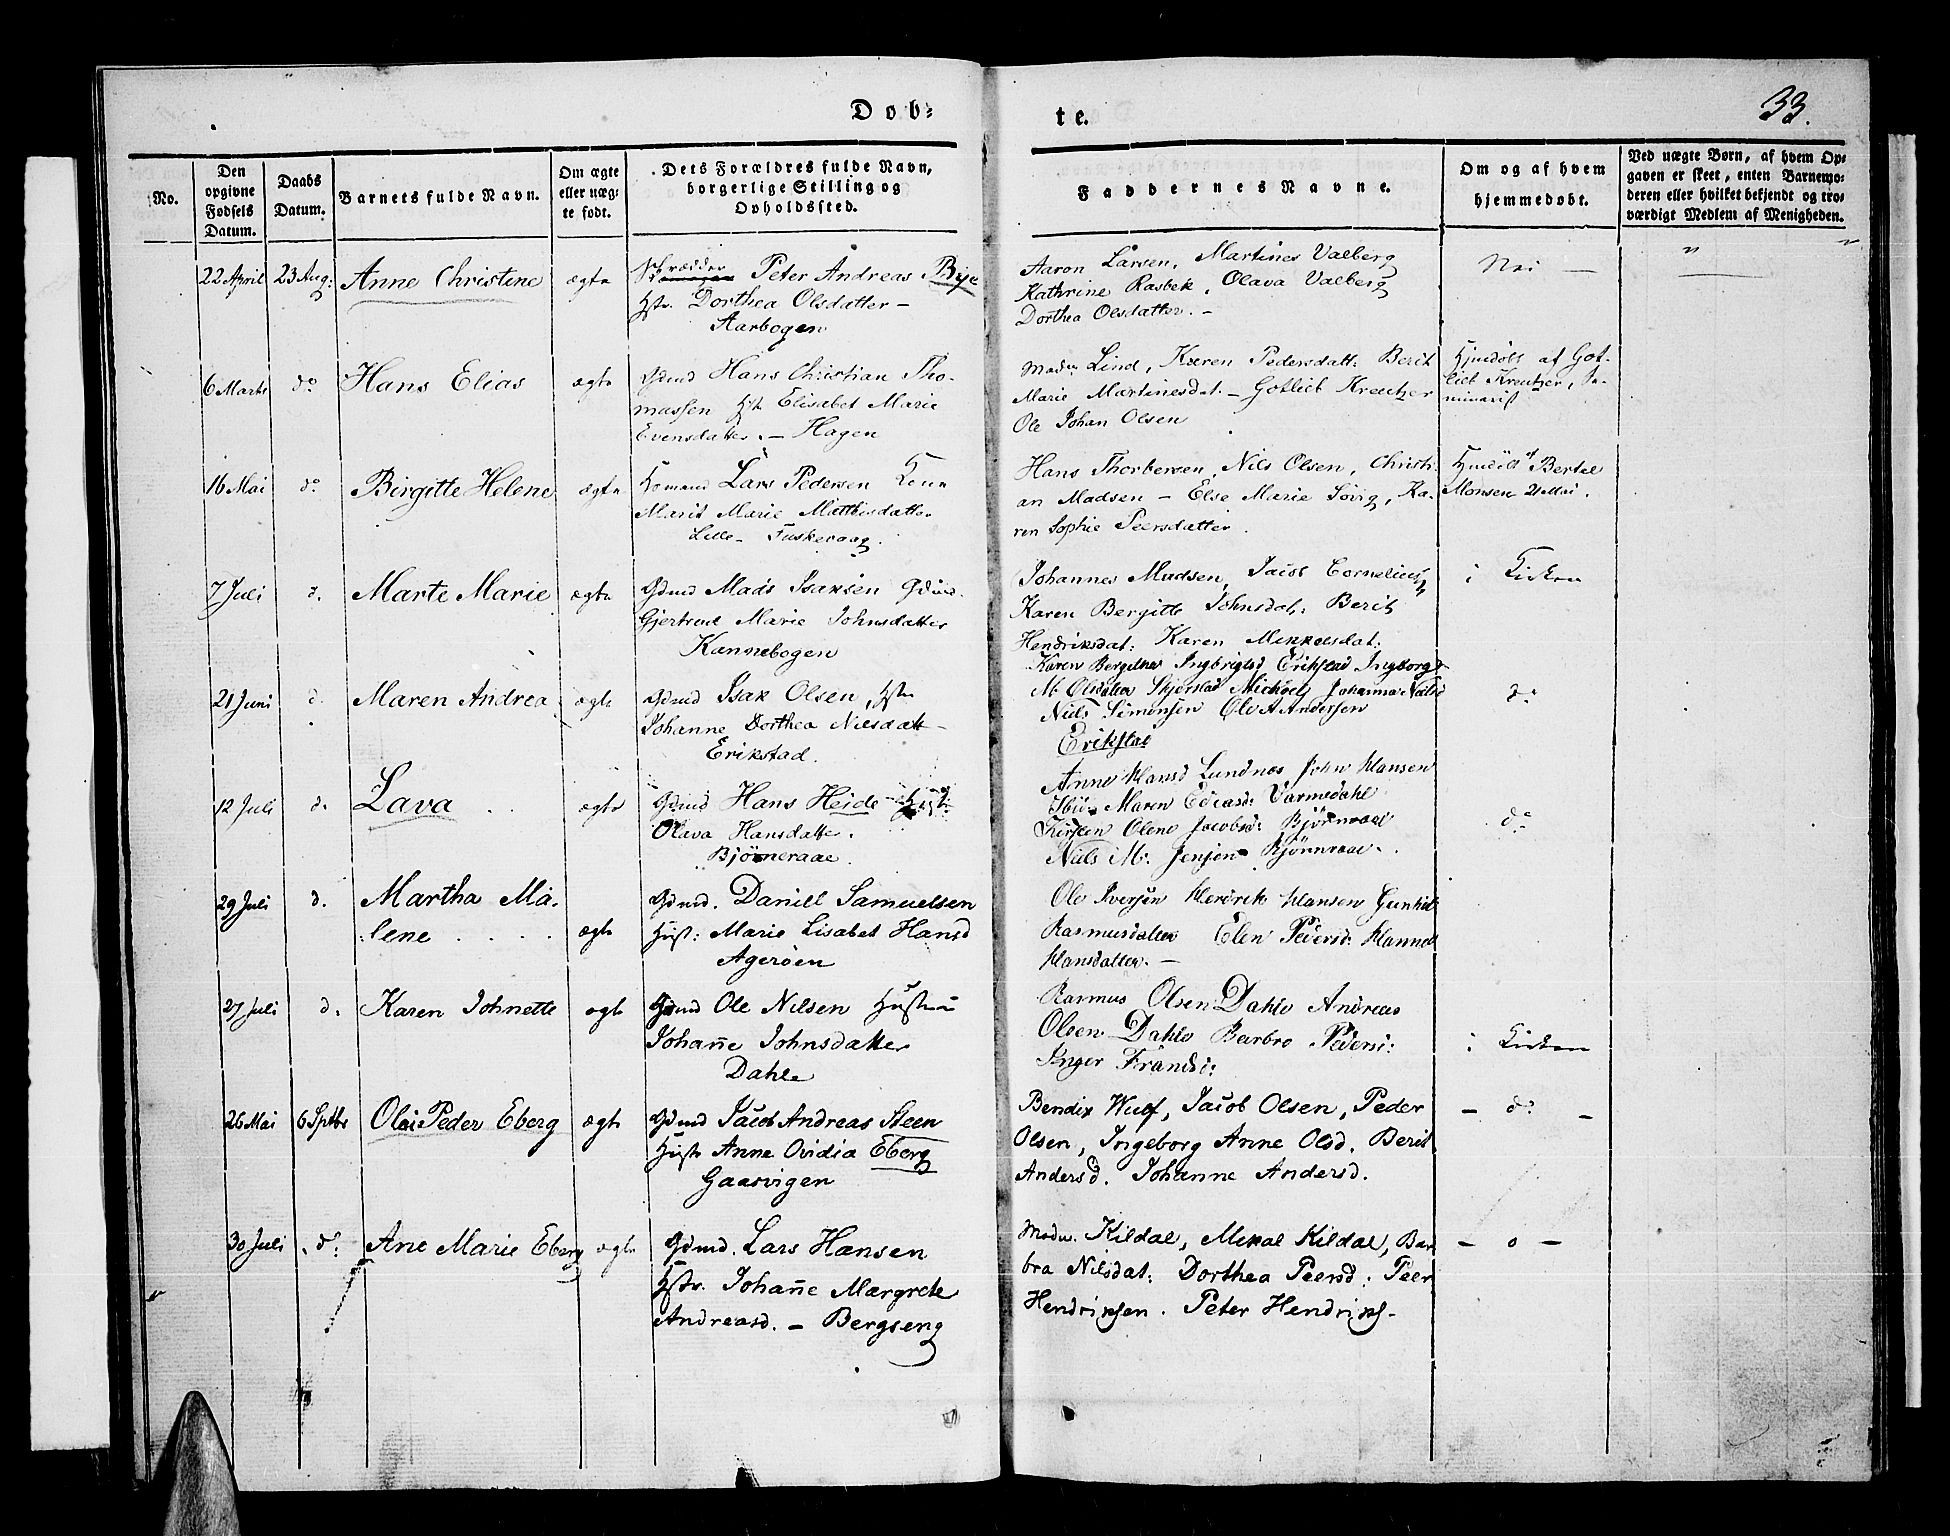 Døb-
te.
33.
No.
Den opgivne Fødsels Datum.
Daabs Datum.
Barnets fulde Navn.
Om ægte eller uægte født.
Dets Forældres fulde Navn, borgerlige Stilling og Opholdssted.
Faddernes Navne.
Om og af hvem hjemmedøbt.
Ved uægte Børn, af hvem Opgaven er skeet, enten Barnemoderen eller hvilket bekjendt og troværdigt Medlem af Menigheden.
22 April 23 Aug: Anne Christine ægte Skrædder Peter Andreas Bye
Hstr. Dorthea Olsdatter -
Aarbogen
Aaron Larsen, Martines Valberg
Kathrine Rasbek, Olava Valberg
Dorthea Olsdatter. -
Nei -
6 Marts do Hans Elias ægte Gdmd Hans Christian Tho-
massen Hst Elisabet Marie
Evensdatter. - Hagen
Madm Lind, Karen Pedersdatt: Berit
Marie Martinesdat. - Gotlieb Kreutzer
Ole Johan Olsen
Hjmdøbt af Got-
lieb Kreutzer, Se-
minarist
16 Mai do Birgitte Helene ægte Lars Pedersen Kone
Marit Marie Mathisdatter
Lille - Fuskevaag.
Hans Thorbersen, Nils Olsen, Christi-
an Madsen - Else Marie Søvig, Ka-
ren Sophie Peersdatter.
Hjmdøbt af Bertel
Monsen 21 Mai.
7 Juli d. Marte Marie ægte Gdmd Mads Isaksen
Gjertrud Marie Johnsdatter
Kannebogen
Johannes Madsen, Jacob Cornelius,
Karen Bergitte Johnsdat: Berit
Hendriksdat: Karen Mikkelsdat:
i Kirken
21 Juni d. Maren Andrea ægte Gdmd Isak Olsen, Hst
Johanne Dorthea Nilsdatt -
Erikstad.
Karen Bergitnes Ingbrigtsd Erikstad Ingeborg
M. Olsdatter Skjerstad Michael Johanna Nilsd
Niels Simonsen Ole A Andersen
Erikstad
do
12 Juli d. Lava ægte Gdmd Hans Heide
Olava Hansdatter.
Bjørneraae.
Anne Hansd Lundnes John Hansen
Maren Eliasd: Varmedahl
Kirsten Olene Jacobsd: Bjørneraae
Niels M. Jensen Bjørnraae.
do
29 Juli d. Martha Ma-
lene ægte Gdmd. Daniel Samuelsen
Hust: Marie Lisabet Hansd
Agerøen
Ole Iversen Hendrik Hansen Gunhil
Rasmusdatter Elen Pedersd: Hanna
Hansdatter. -
27 Juli d. Karen Johnette ægte Gdmd Ole Nilsen Hustru
Johanne Johnsdatter
Dahle
Rasmus Olsen Dahle Andreas
Olsen Dahle Barbro Pedersd:
Inger Frandsd:
i Kirken
26 Mai 6 Sptbr Olai Peder Eberg ægte Gdmd Jacob Andreas Steen
Hustr Anne Ovidia Eberg
Gaasvigen
Bendix Wulf, Jacob Olsen, Peder
Olsen, Ingeborg Anne Olsd. Berit
Andersd. Johanne Andersd.
- do -
30 Juli do: Ane Marie Eberg ægte Gdmd. Lars Hansen
Hstr. Johanne Margrete
Andreasd. - Bergseng
Madm. Kildal, Mikal Kildal, Bar
bra Nilsdat: Dorthea Peersd: Peer
Hendriksen. Peter Hendriks-
- o -